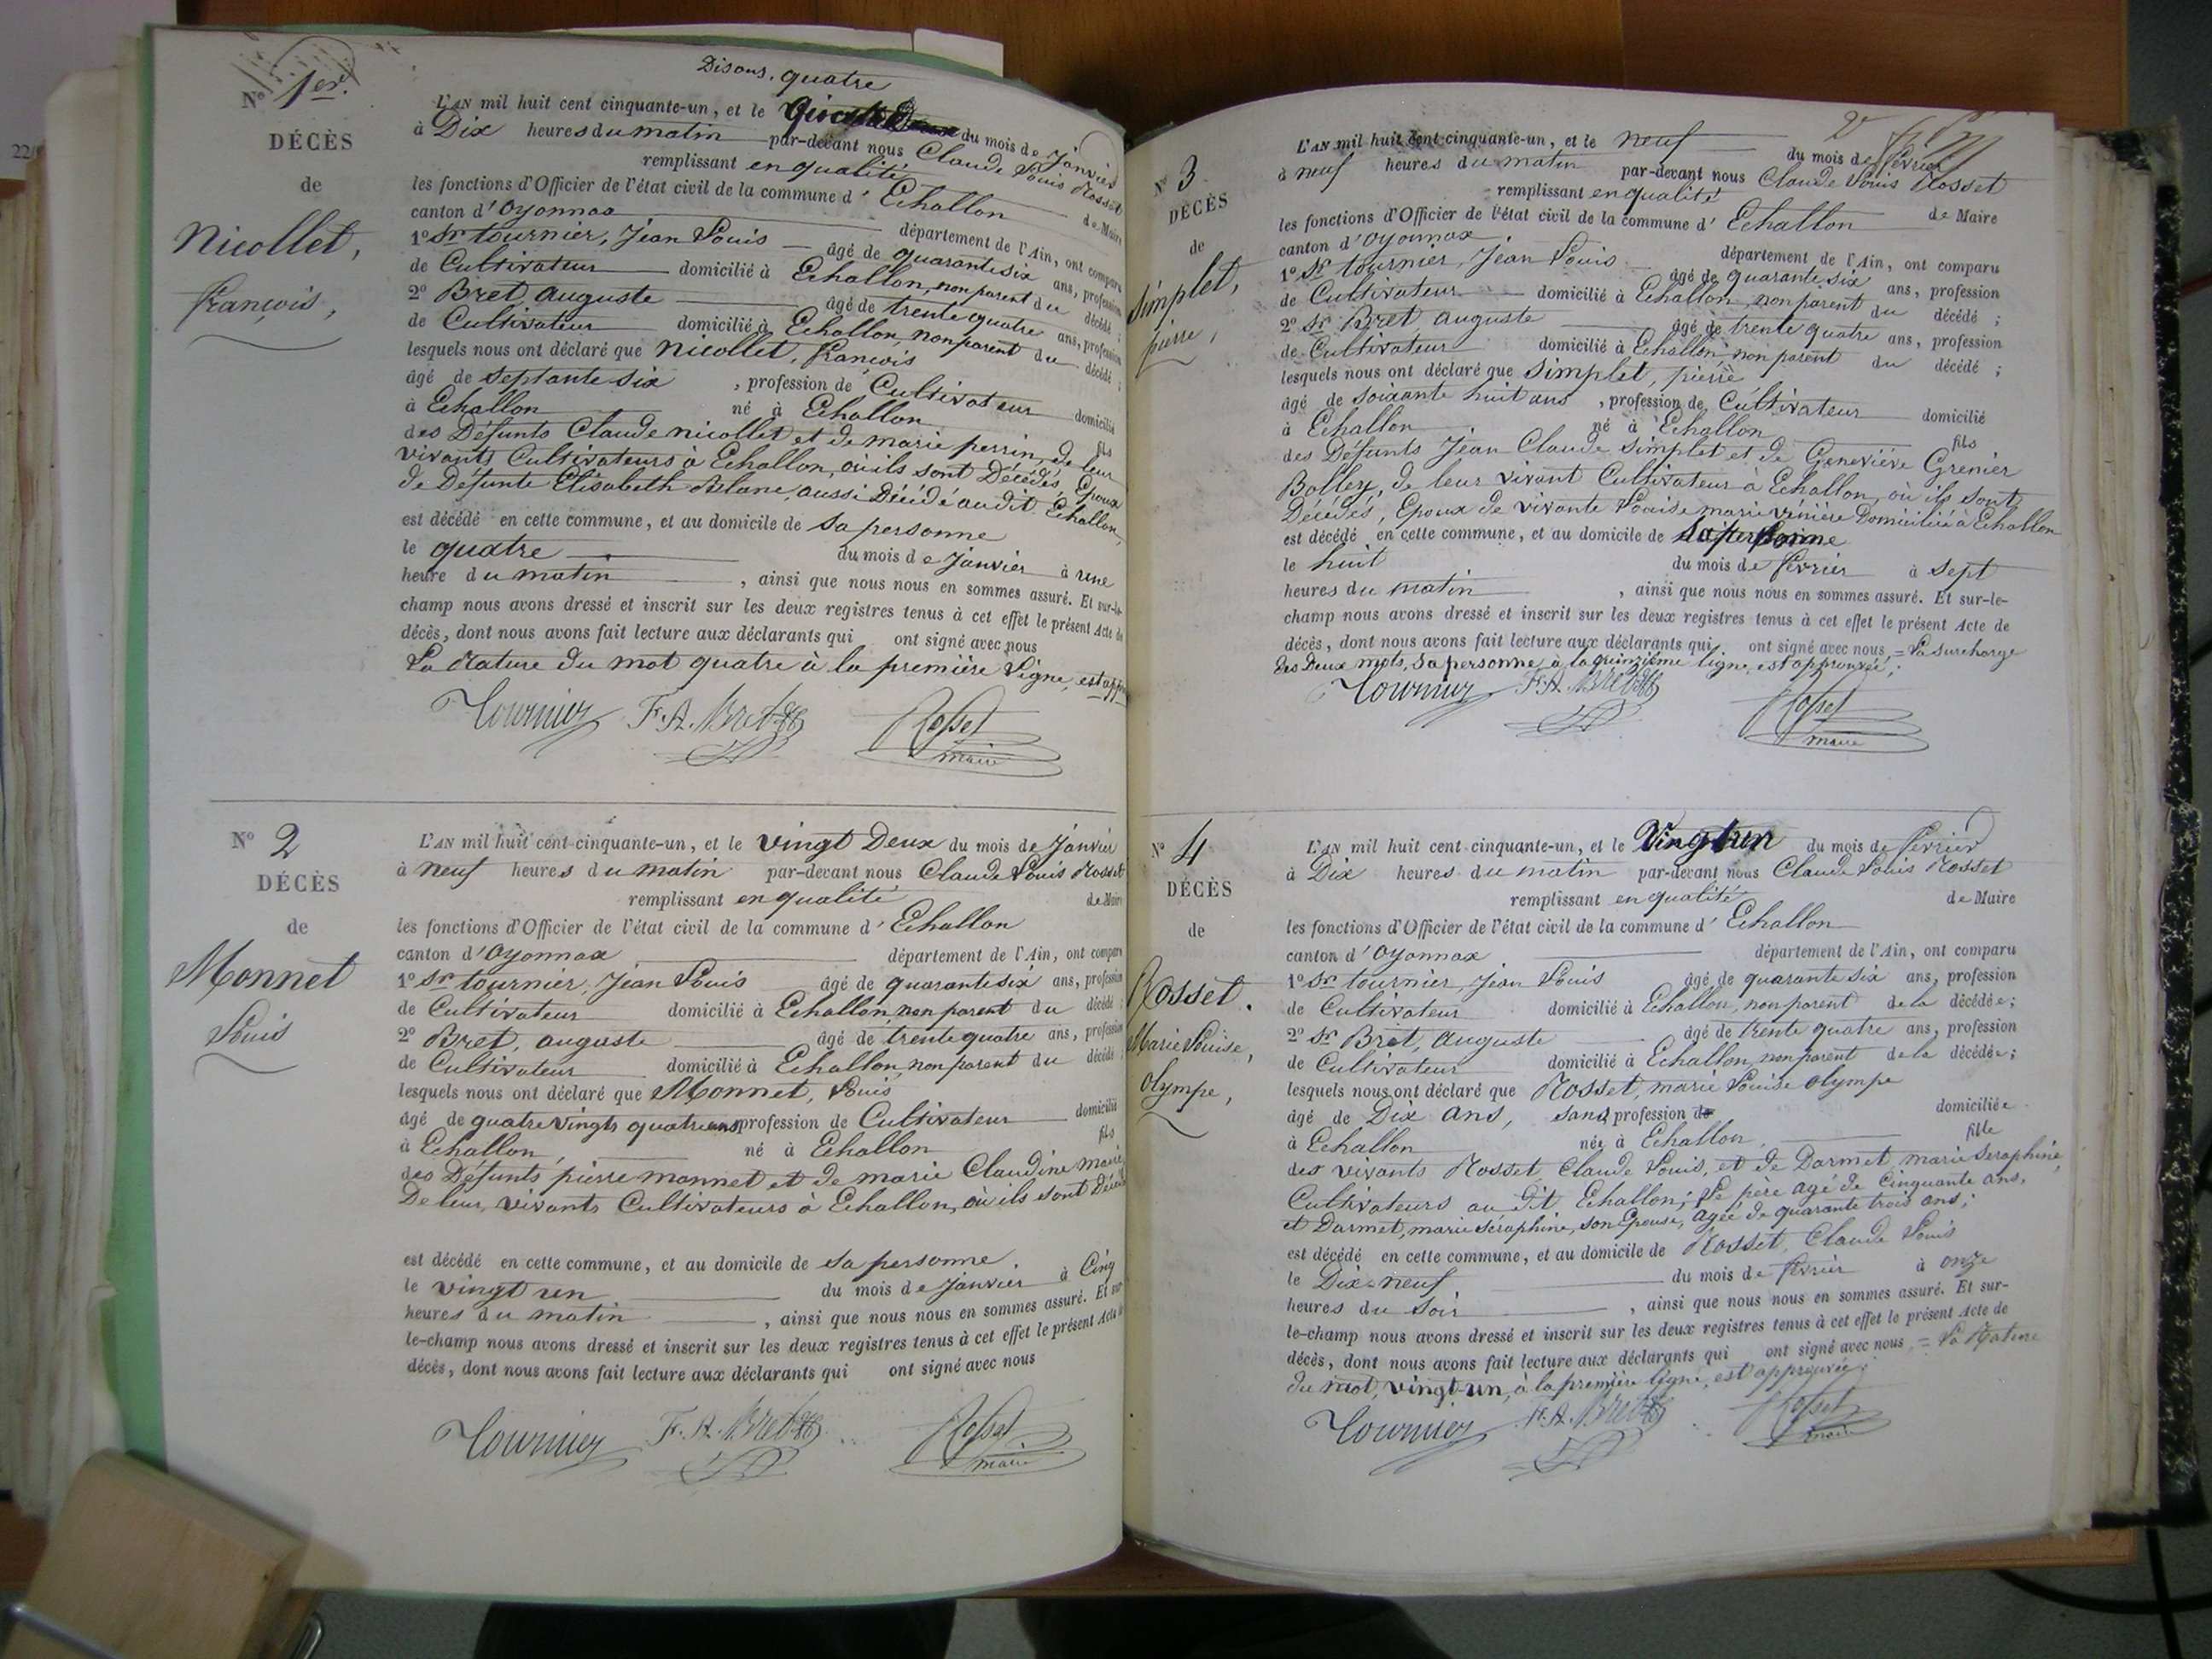 Disons, quatre
N° 1er.
DÉCÈS
de
Nicollet,
françois,
L'AN mil huit cent cinquante-un, et le du mois de Janvier
à Dix heures du matin par-devant nous Claude Louis Rosset
remplissant en qualité de Maire
les fonctions d'Officier de l'état civil de la commune d'Echallon
canton d'Oyonnax département de l'Ain, ont comparu
1° Sr tournier, Jean Louis âgé de quarante six ans, profession
de Cultivateur domicilié à Echallon, non parent du décédé;
2° Bret, auguste âgé de trente quatre ans, profession
de Cultivateur domicilié à Echallon, non parent du décédé;
lesquels nous ont déclaré que Nicollet, françois
âgé de septante six, profession de Cultivateur domicilié
à Echallon né à Echallon fils
des Défunts Claude nicollet et de marie perrin, de leur
vivants Cultivateurs à Echallon, où ils sont Décédés, Epoux
de Défunte Elisabeth Blanc, aussi Décédé au dit Echallon,
est décédé en cette commune, et au domicile de sa personne
le quatre du mois de Janvier à une
heure du matin, ainsi que nous nous en sommes assuré. Et sur-le-
champ nous avons dressé et inscrit sur les deux registres tenus à cet effet le présent Acte de
décès, dont nous avons fait lecture aux déclarants qui ont signé avec nous
La Rature du mot quatre à la première Ligne, est
Tournier F. A. Bret Rosset
maire
N° 2
DÉCÈS
de
Monnet
Louis
L'AN mil huit cent cinquante-un, et le vingt Deux du mois de Janvier
à neuf heures du matin par-devant nous Claude Louis Rosset
remplissant en qualité de Maire
les fonctions d'Officier de l'état civil de la commune d'Echallon
canton d'Oyonnax département de l'Ain, ont comparu
1° Sr tournier, Jean Louis âgé de quarante six ans, profession
de Cultivateur domicilié à Echallon, non parent du décédé;
2° Bret, auguste âgé de trente quatre ans, profession
de Cultivateur domicilié à Echallon, non parent du décédé
lesquels nous ont déclaré que Monnet, Louis
âgé de quatre vingts quatre ans profession de Cultivateur domicilié
à Echallon, né à Echallon fils
des Défunts pierre monnet et de marie Claudine
De leur vivants Cultivateurs à Echallon, où ils sont
est décédé en cette commune, et au domicile de sa personne
le vingt un du mois de Janvier à Cinq
heures du matin, ainsi que nous nous en sommes assuré. Et sur
le-champ nous avons dressé et inscrit sur les deux registres tenus à cet effet le présent Acte de
décès, dont nous avons fait lecture aux déclarants qui ont signé avec nous
Tournier F. A. Bret Rosset
maire
N° 3
DÉCÈS
de
Simplet,
pierre,
L'AN mil huit cent cinquante-un, et le neuf du mois de février
à neuf heures du matin par-devant nous Claude Louis Rosset
remplissant en qualité de Maire
les fonctions d'Officier de l'état civil de la commune d'Echallon
canton d'Oyonnax département de l'Ain, ont comparu
1° Sr tournier, Jean Louis âgé de quarante six ans, profession
de Cultivateur domicilié à Echallon, non parent du décédé;
2° Sr Bret, auguste âgé de trente quatre ans, profession
de Cultivateur domicilié à Echallon, non parent du décédé;
lesquels nous ont déclaré que Simplet, pierre
âgé de soixante huit ans, profession de Cultivateur domicilié
à Echallon né à Echallon fils
des Défunts Jean Claude Simplet et de Geneviève Grenier
Bolley, de leur vivant Cultivateur à Echallon, où ils sont
Décédés, Epoux de vivante Louise marie Domiciliée à Echallon
est décédé en cette commune, et au domicile de sa personne
le huit du mois de février à sept
heures du matin, ainsi que nous nous en sommes assuré. Et sur-le-
champ nous avons dressé et inscrit sur les deux registres tenus à cet effet le présent Acte de
décès, dont nous avons fait lecture aux déclarants qui ont signé avec nous = La surcharge
des Deux mots, sa personne, à la quinzième ligne, est approuvée;
Tournier F. A. Bret Rosset
maire
N° 4
DÉCÈS
de
Rosset.
Marie Louise,
olympe,
L'AN mil huit cent cinquante-un, et le Vingt un du mois de février
à Dix heures du matin par-devant nous Claude Louis Rosset
remplissant en qualité de Maire
les fonctions d'Officier de l'état civil de la commune d'Echallon
canton d'Oyonnax département de l'Ain, ont comparu
1° Sr tournier, Jean Louis âgé de quarante six ans, profession
de Cultivateur domicilié à Echallon, non parent de la décédée;
2° Sr Bret, auguste âgé de trente quatre ans, profession
de Cultivateur domicilié à Echallon, non parent de la décédée;
lesquels nous ont déclaré que Rosset, marie Louise olympe
âgé de Dix ans, sans profession de domiciliée
à Echallon née à Echallon, fille
des vivants Rosset Claude Louis, et de Darmet marie seraphine,
Cultivateurs au dit Echallon; Le père agé de Cinquante ans,
et Darmet, marie seraphine, son Epouse, agée de quarante trois ans;
est décédé en cette commune, et au domicile de Rosset, Claude Louis
le Dix-neuf du mois de février à onze
heures du soir, ainsi que nous nous en sommes assuré. Et sur-
le-champ nous avons dressé et inscrit sur les deux registres tenus à cet effet le présent Acte de
décès, dont nous avons fait lecture aux déclarants qui ont signé avec nous, = La Rature
du mot, vingt-un, à la première ligne, est approuvée;
Tournier F. A. Bret Rosset
maire